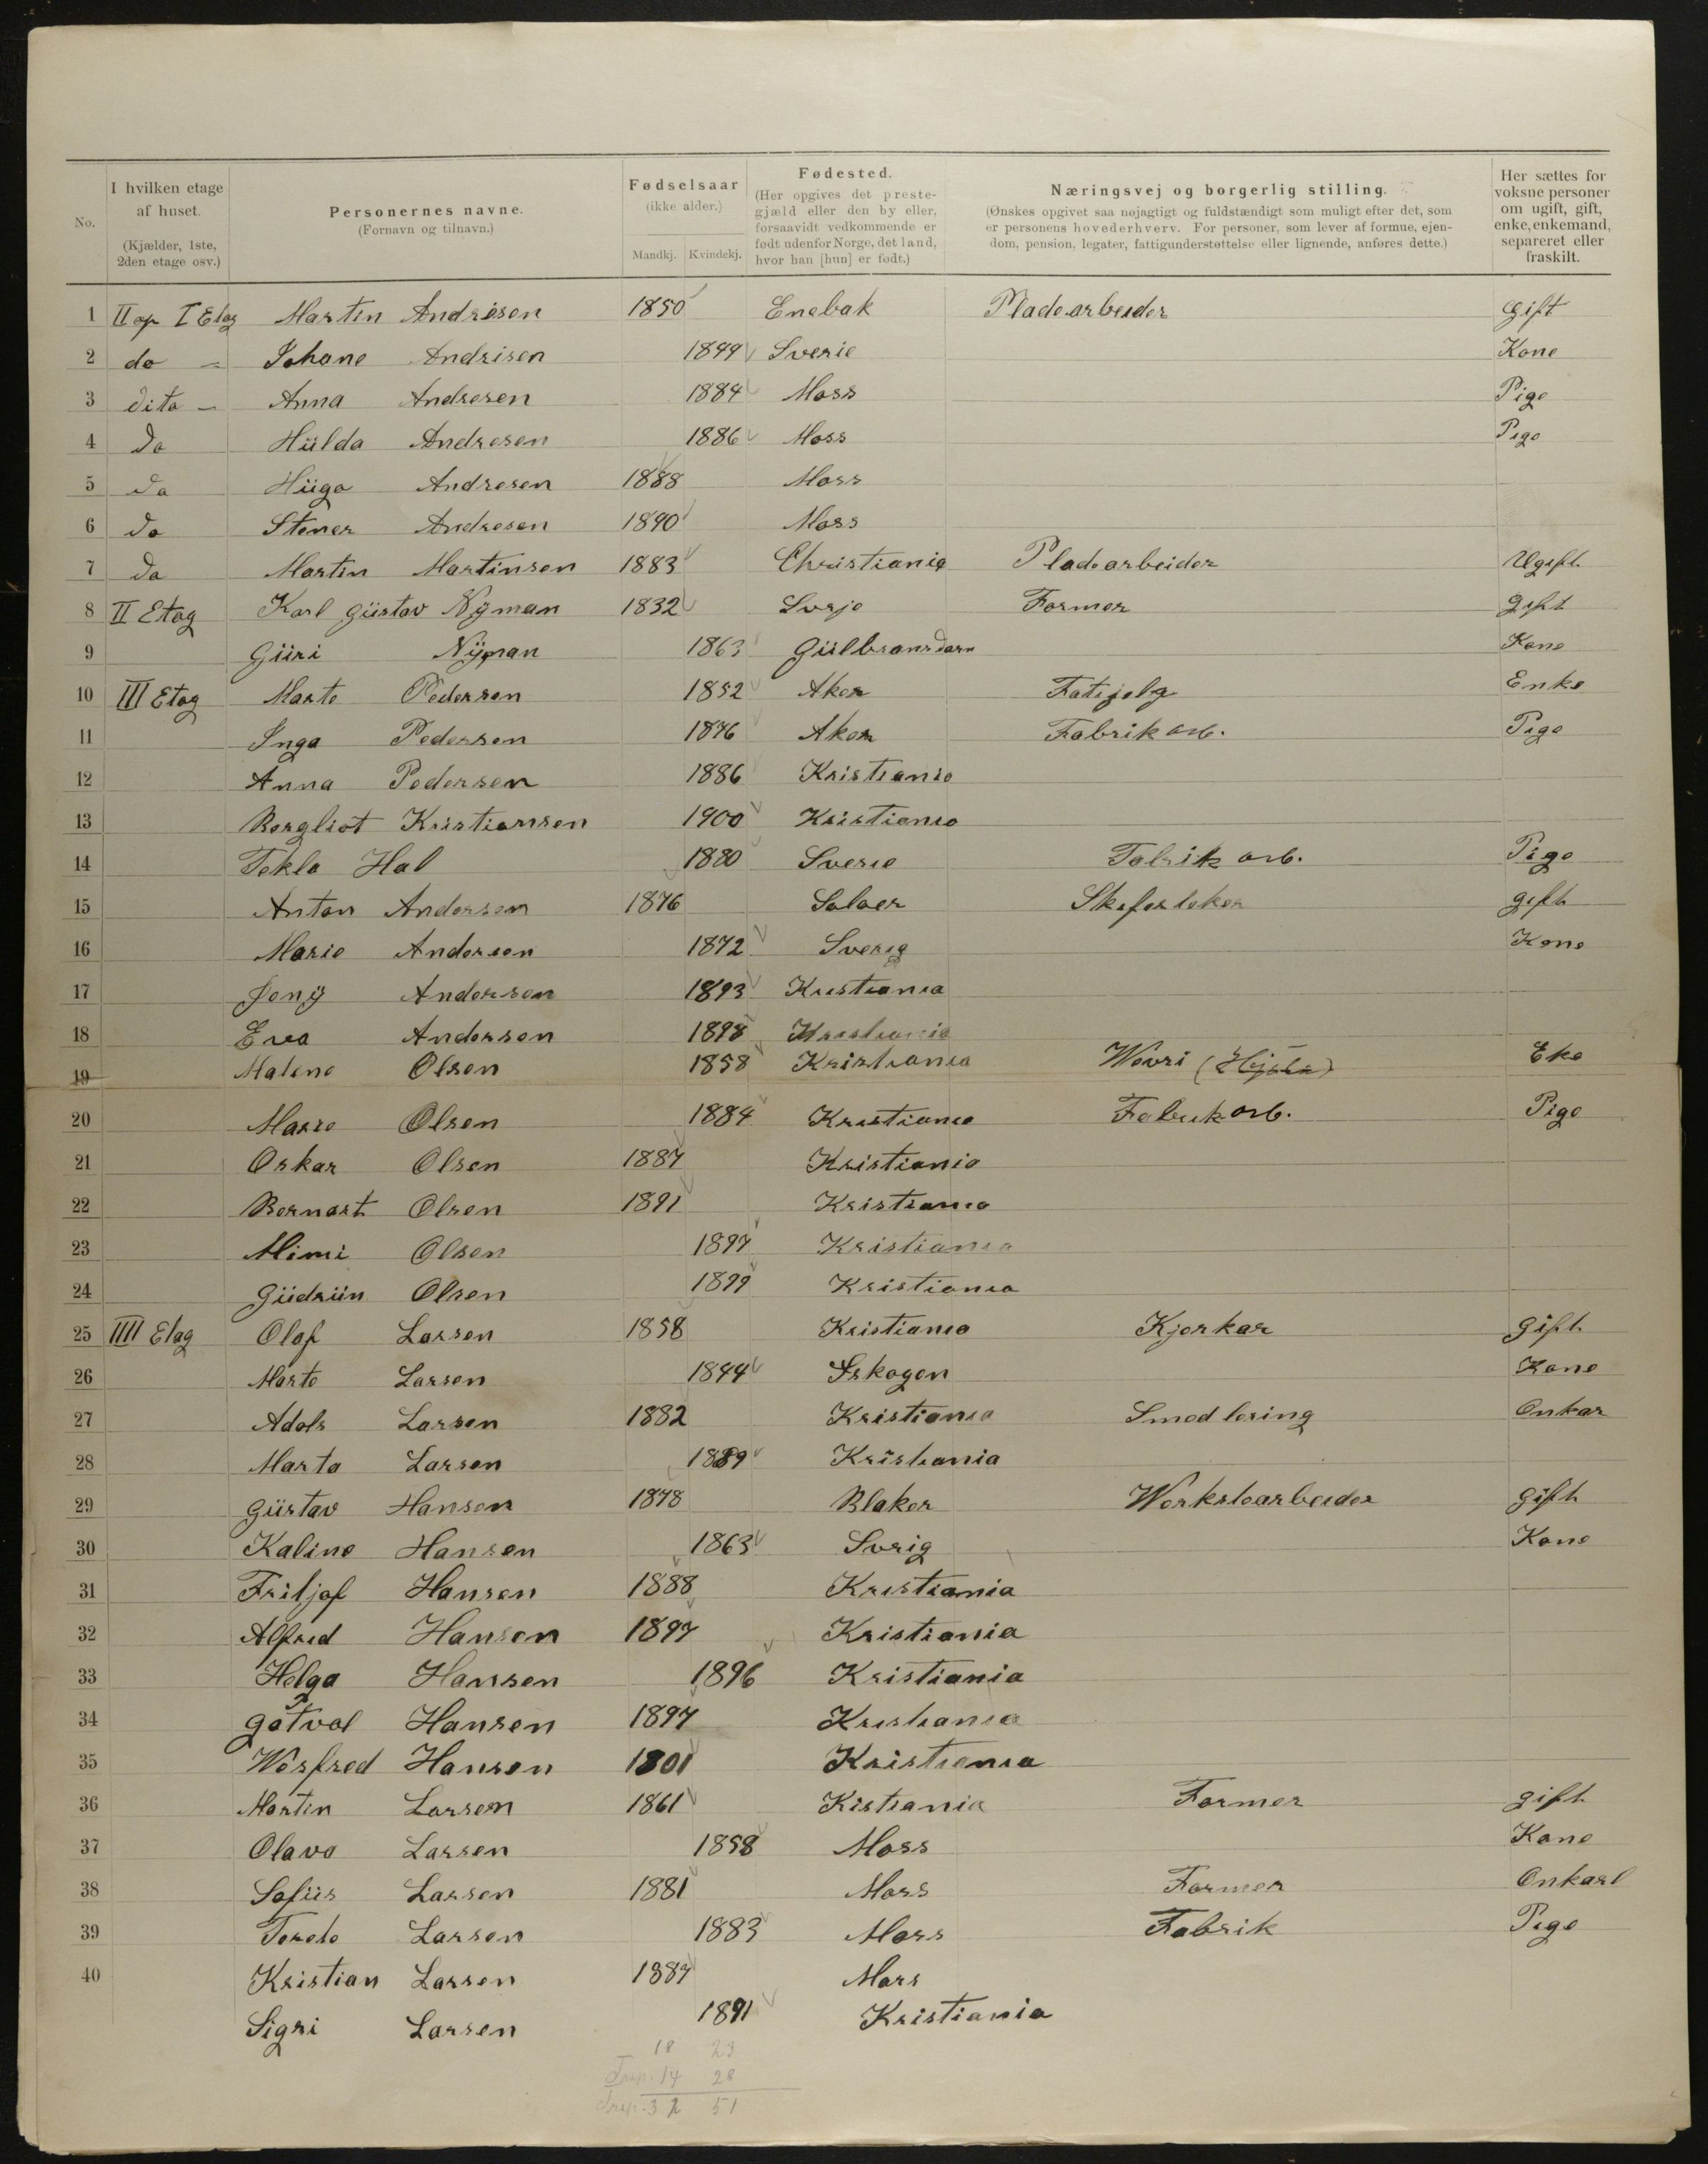 No.
I hvilken etage af huset. (Kjælder, 1ste, 2den etage osv.)
Personernes navne. (Fornavn og tilnavn.)
Fødselsaar (ikke alder.) Mandkj. Kvindekj.
Fødested. (Her opgives det prestegjæld eller den by eller, forsaavidt vedkommende er født udenfor Norge, det land, hvor han [hun] er født.)
Næringsvej og borgerlig stilling. (Ønskes opgivet saa nøjagtigt og fuldstændigt som muligt efter det, som er personens hovederhverv. For personer, som lever af formue, ejendom, pension, legater, fattigunderstøttelse eller lignende, anføres dette.)
Her sættes for voksne personer om ugift, gift, enke, enkemand, separeret eller fraskilt.
1 II op I Etag Martin Andresen 1850 Enebak Pladearbeider Gift
2 do - Johane Andrisen 1849 Sverie Kone
3 dito - Anna Andresen 1884 Moss Pige
4 do Hülda Andresen 1886 Moss Pige
5 do Hügo Andresen 1888 Moss
6 do Stener Andresen 1890 Moss
7 do Martin Martinsen 1883 Christiania Pladearbeider Ugift
8 II Etag Karl Güstav Nÿman 1832 Sverje Former gift
9 Güri Nÿman 1863 Kone
10 III Etag Marte Pedersen 1852 Aker Enke
11 Inga Pedersen 1876 Aker Fabrik arb. Pige
12 Anna Pedersen 1886 Kristiania
13 Bergliot Kristiansen 1900 Kristiania
14 Tekla Hal 1880 Sverie Fabrik arb. Pige
15 Anton Andersen 1876 Soloer gift
16 Marie Andersen 1872 Sverig Kone
17 Jenÿ Andersen 1893 Kristiania
18 Eva Andersen 1898 Kristiania
19 Malene Olsen 1858 Kristiania Eke
20 Marie Olsen 1884 Kristiania Fabrik arb. Pige
21 Oskar Olsen 1887 Kristiania
22 Bernart Olsen 1891 Kristiania
23 Mimi Olsen 1897 Kristiania
24 Güdrün Olsen 1899 Kristiania
25 IIII Etag Olaf Larsen 1858 Kristiania Kjørkar gift
26 Marte Larsen 1844 Eskogen Kone
27 Adols Larsen 1882 Kristiania Smed lering Onkar
28 Marta Larsen 1889 Kristiania
29 Güstav Hansen 1878 Blaker Werkstearbeider gift
30 Kaline Hansen 1863 Sverig Kone
31 Fritjof Hansen 1888 Kristiania
32 Alfred Hansen 1897 Kristiania
33 Helga Hansen 1896 Kristiania
34 Gotvol Hansen 1897 Kristiania
35 Hansen 1801 Kristiania
36 Martin Larsen 1861 Kistiania Former gift
37 Olava Larsen 1858 Moss Kone
38 Sofüs Larsen 1881 Moss Former Onkarl
39 Larsen 1883 Moss Fabrik Pige
40 Kristian Larsen 1887 Moss
Sigri Larsen 1891 Kristiania
18 23
14 28
32 51